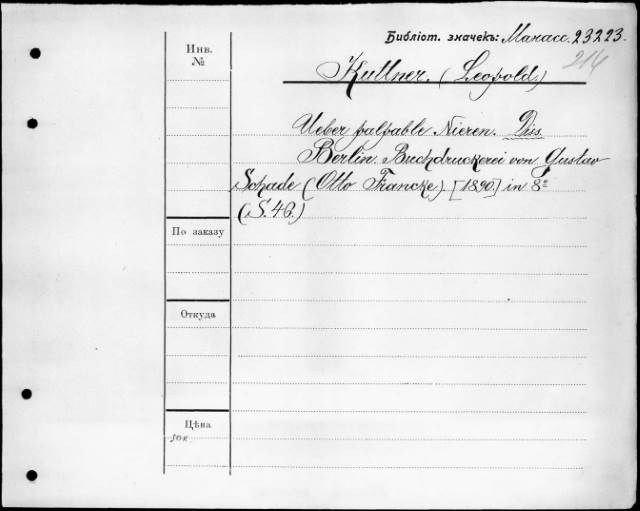 Библіот. значекъ: Манасс. 23223.
214
Инв.
№
Kuttner. (Leopold.)
Ueber palpable Nieren. Diss.
Berlin. Buchdruckerei von Gustav
Schade (Otto Francke). [1890.] in 8º
(S. 46.)
По заказу
Откуда
Цѣна
50к